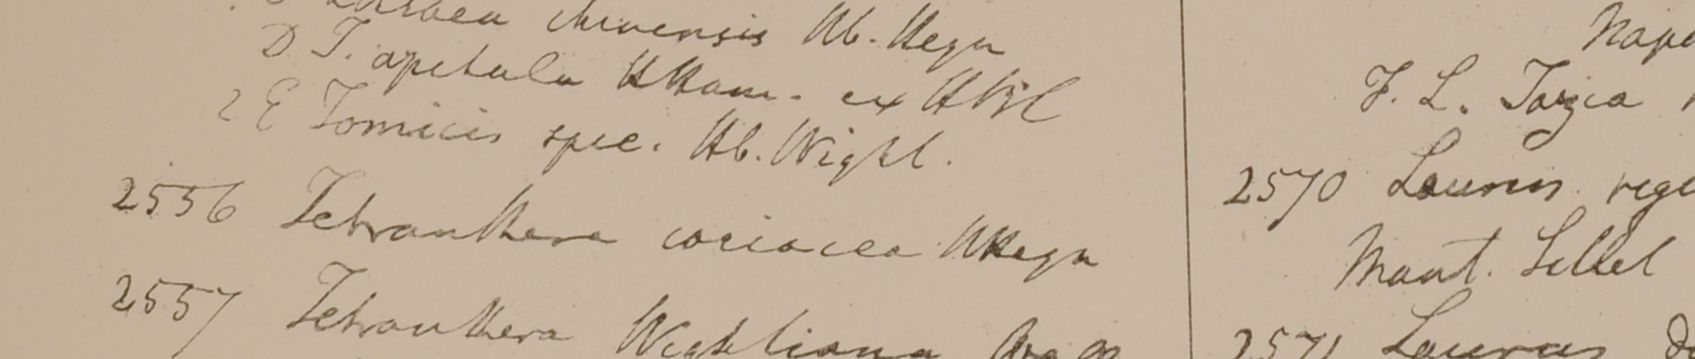 chinensis Hb. Heyn
D T. apetala HHam. ex HBC
2 E Tomicis spec. Hb. Wight.
2556 Tetranthera coriacea HHeyn
2557 Tetranthera Wightiana
F. L.
2570 Laurus
Mant. Sillet
2571 Laurus